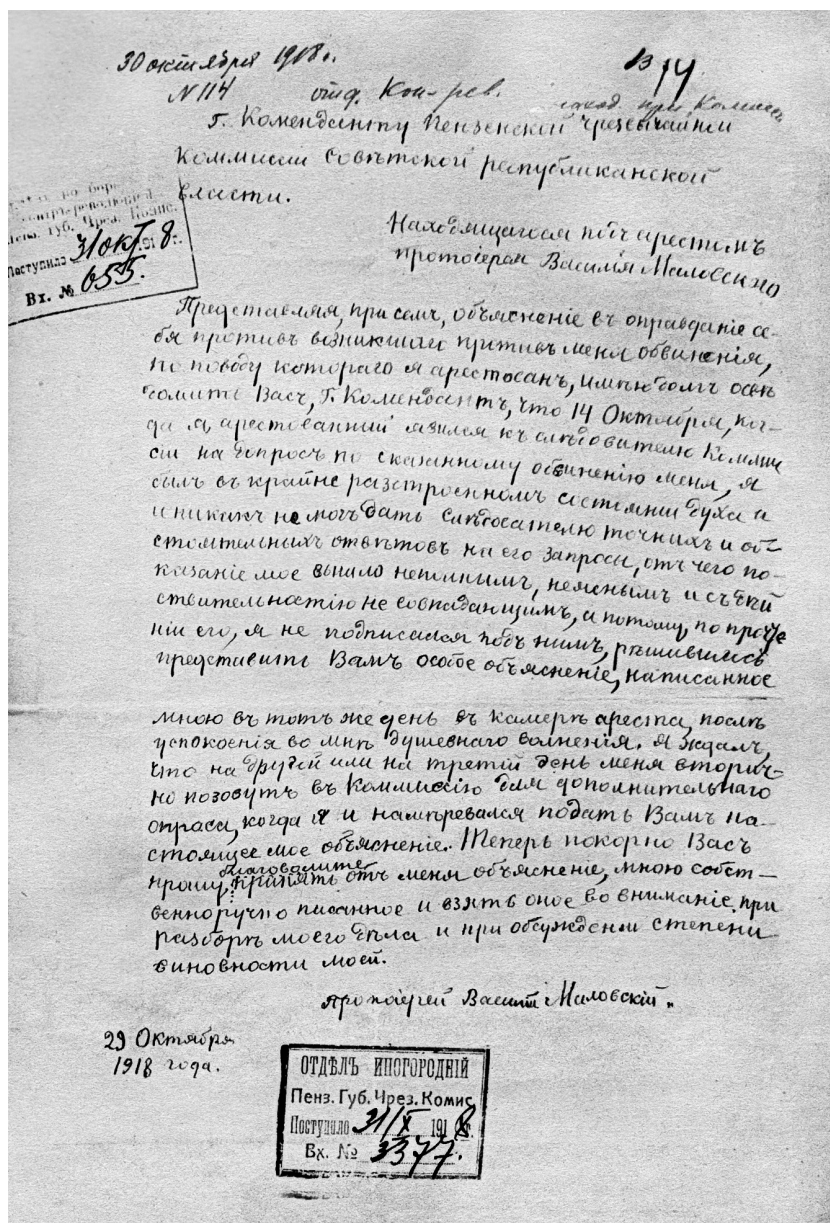 30 октября 1918 г.
13 14
N 114 отд. Кон-рев.
при Комисс
Г. Коменданту Пензенской Чрезвычайной
Коммисіи Совѣтской республиканской
власти.
контръ-революціей
Пенз. Губ. Чрез. Комис.
Поступило 31 окт 1918 г.
Вх. № 655.
Находящагося подъ арестомъ
протоіерея Василія Маловскаго
Представляя, при семъ, объясненіе въ оправданіе се-
бя противъ возникшаго противъ меня обвиненія,
по поводу котораго я арестованъ, имѣю долгъ освѣ
домить Васъ, Г. Комендантъ, что 14 Октября, ког-
да я, арестованный явился къ слѣдователю Коммис
сіи на допросъ по сказанному обвиненію меня, я
былъ въ крайне разстроенномъ состояніи духа и
и никакъ не могъ дать слѣдователю точныхъ и об-
стоятельныхъ отвѣтовъ на его запросы, отъ чего по-
казаніе мое вышло неполнымъ, неяснымъ и съ дѣй
ствительностію не совпадающимъ, а потому, по прочте
ніи его, я не подписался подъ нимъ, рѣшившись
представить Вамъ особое объясненіе, написанное
мною въ тотъ же день въ камерѣ ареста, послѣ
успокоенія во мнѣ душевнаго волненія. Я ждалъ,
что на другой или на третій день меня вторич-
но позовутъ въ Коммисію для дополнительнаго
опроса, когда я и намѣревался подать Вамъ на-
стоящее мое объясненіе. Теперь покорно Васъ
прошу, благоволите принять отъ меня объясненіе, мною собст-
венноручно писанное и взять оное во вниманіе при
разборѣ моего дѣла и при обсужденіи степени
виновности моей.
Протоіерей Василій Маловскій.
29 Октября
1918 года.
ОТДѢЛЪ ИНОГОРОДНІЙ
Пенз. Губ. Чрез. Комис.
Поступило 31/X 1918 г.
Вх. № 3377.